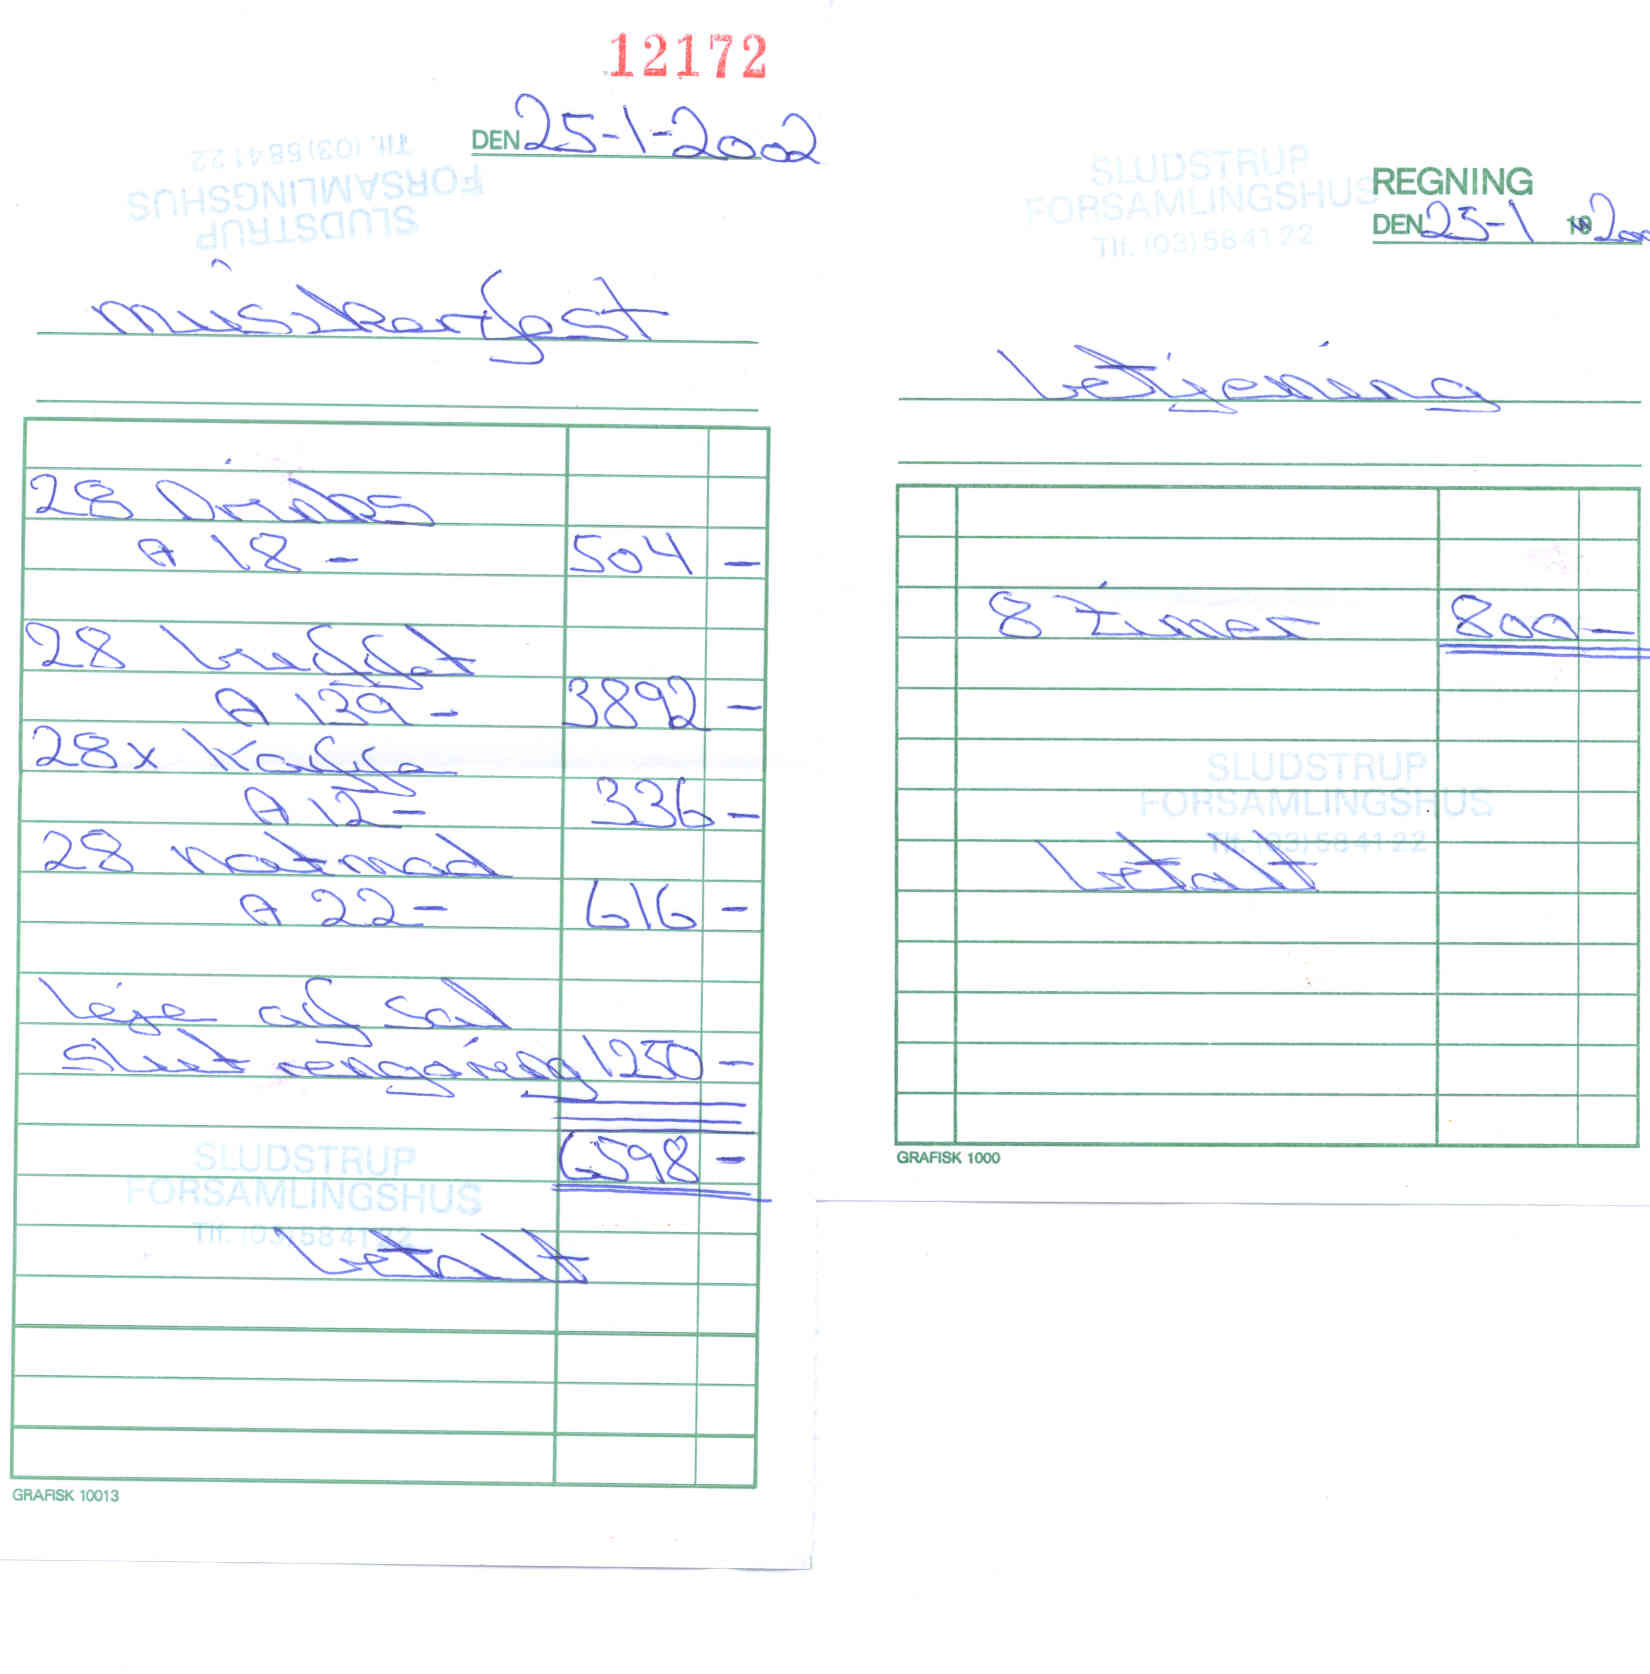 12172
DEN 25-1-2002
SLUDSTRUP
FORSAMLINGSHUS
Tlf. (03) 58 41 22
musikerfest
28 Drinks
A 18 - 504 -
28 buffet
A 139 - 3892 -
28 x kaffe
A 12 - 336 -
28 natmad
A 22 - 616 -
leje af sal
slut rengøring 1250 -
6598 -
SLUDSTRUP
FORSAMLINGSHUS
Tlf. (03) 58 41 22
betalt
GRAFISK 10013
SLUDSTRUP
FORSAMLINGSHUS
Tlf. (03) 58 41 22
REGNING
DEN 25-1 19
betjening
8 timer 800 -
SLUDSTRUP
FORSAMLINGSHUS
Tlf. (03) 58 41 22
betalt
GRAFISK 1000